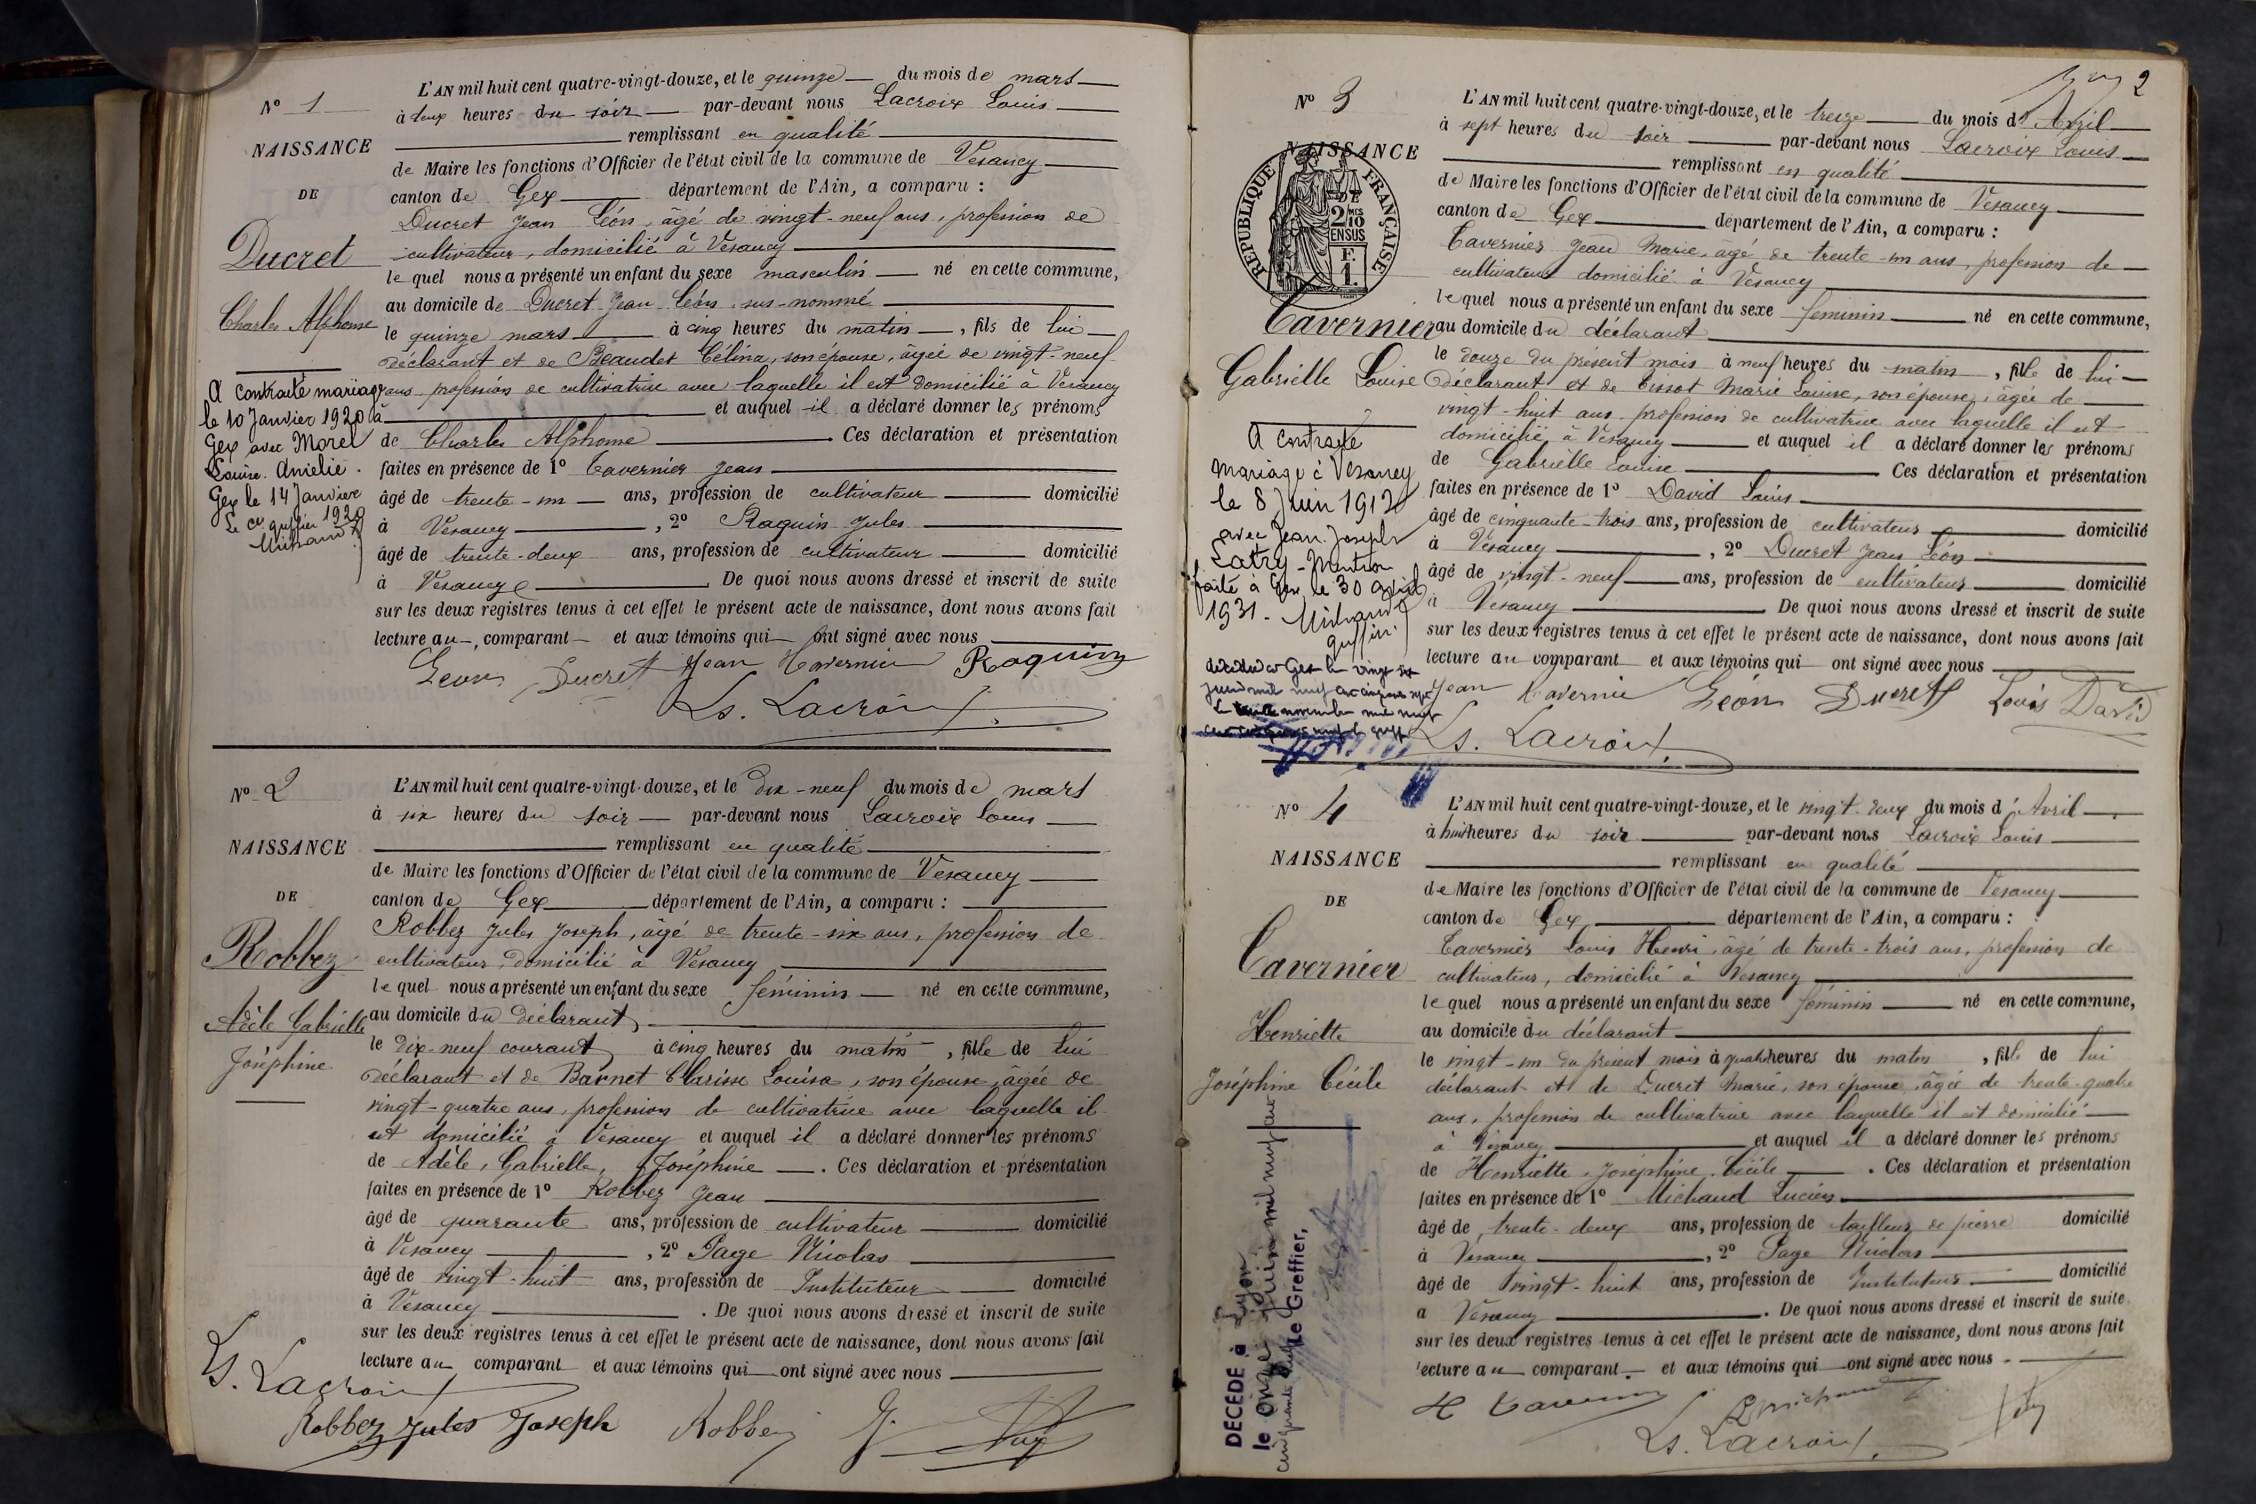 N° 1
NAISSANCE
DE
Ducret
Charles Alphonse
A contracté mariage
le 10 Janvier 1920 à
Gex avec Morel
Louise Amélie.
Gex le 14 Janvier
1920
L'AN mil huit cent quatre-vingt-douze, et le quinze du mois de mars
à deux heures du soir par-devant nous Lacroix Louis
remplissant en qualité
de Maire les fonctions d'Officier de l'état civil de la commune de Vesancy
canton de Gex département de l'Ain, a comparu :
Ducret Jean Léon, âgé de vingt-neuf ans, profession de
cultivateur, domicilié à Vesancy
lequel nous a présenté un enfant du sexe masculin né en cette commune,
au domicile de Ducret Jean Léon sus-nommé
le quinze mars à cinq heures du matin, fils de lui
déclarant et de Beaudet Célina, son épouse, âgée de vingt-neuf
ans profession de cultivatrice avec laquelle il est domicilié à Vesancy
et auquel il a déclaré donner les prénoms
de Charles Alphonse. Ces déclaration et présentation
faites en présence de 1° Tavernier Jean
âgé de trente-un ans, profession de cultivateur domicilié
à Vesancy, 2° Raquin Jules
âgé de trente-deux ans, profession de cultivateur domicilié
à Vesancy. De quoi nous avons dressé et inscrit de suite
sur les deux registres tenus à cet effet le présent acte de naissance, dont nous avons fait
lecture au, comparant et aux témoins qui ont signé avec nous
Léon Ducret Jean Tavernier Raquin
Ls. Lacroix
N° 2
NAISSANCE
DE
Robbez
Adèle Gabrielle
Joséphine
L'AN mil huit cent quatre-vingt-douze, et le dix-neuf du mois de mars
à six heures du soir par-devant nous Lacroix Louis
remplissant en qualité
de Maire les fonctions d'Officier de l'état civil de la commune de Vesancy
canton de Gex département de l'Ain, a comparu :
Robbez Jules Joseph, âgé de trente-six ans, profession de
cultivateur, domicilié à Vesancy
lequel nous a présenté un enfant du sexe féminin né en cette commune,
au domicile du déclarant
le dix-neuf courant à cinq heures du matin, fille de lui
déclarant et de Barnet Clarisse Louisa, son épouse, âgée de
vingt-quatre ans, profession de cultivatrice avec laquelle il
est domicilié à Vesancy et auquel il a déclaré donner les prénoms
de Adèle, Gabrielle, Joséphine. Ces déclaration et présentation
faites en présence de 1° Robbez Jean
âgé de quarante ans, profession de cultivateur domicilié
à Vesancy, 2° Page Nicolas
âgé de vingt-huit ans, profession de Instituteur domicilié
à Vesancy. De quoi nous avons dressé et inscrit de suite
sur les deux registres tenus à cet effet le présent acte de naissance, dont nous avons fait
lecture au comparant et aux témoins qui ont signé avec nous
Ls. Lacroix
Robbez Jules Joseph Robbez J.
2
N° 3
NAISSANCE
DE
REPUBLIQUE FRANÇAISE
2/10 EN SUS
F. 1.
Tavernier
Gabrielle Louise
A contracté
mariage à Vesancy
le 8 Juin 1912
avec Jean Joseph
Latry - Mention
faite à Gex le 30 avril
1931 -
L'AN mil huit cent quatre-vingt-douze, et le treize du mois d'Avril
à sept heures du soir par-devant nous Lacroix Louis
remplissant en qualité
de Maire les fonctions d'Officier de l'état civil de la commune de Vesancy
canton de Gex département de l'Ain, a comparu :
Tavernier Jean Marie, âgé de trente-un ans, profession de
cultivateur domicilié à Vesancy
lequel nous a présenté un enfant du sexe féminin né en cette commune,
au domicile du déclarant
le douze du présent mois à neuf heures du matin, fille de lui
déclarant et de Tissot Marie Louise, son épouse, âgée de
vingt-huit ans profession de cultivatrice avec laquelle il est
domicilié à Vesancy et auquel il a déclaré donner les prénoms
de Gabrielle Louise Ces déclaration et présentation
faites en présence de 1° David Louis
âgé de cinquante-trois ans, profession de cultivateur domicilié
à Vesancy, 2° Ducret Jean Léon
âgé de vingt-neuf ans, profession de cultivateur domicilié
à Vesancy De quoi nous avons dressé et inscrit de suite
sur les deux registres tenus à cet effet le présent acte de naissance, dont nous avons fait
lecture au comparant et aux témoins qui ont signé avec nous
Jean Tavernier Léon Ducret Louis David
Ls. Lacroix
N° 4
NAISSANCE
DE
Tavernier
Henriette
Joséphine Cécile
DÉCÉDÉ à Lyon
le onze juin mil neuf cent
cinquante
Le Greffier,
L'AN mil huit cent quatre-vingt-douze, et le vingt-deux du mois d'Avril
à huit heures du soir par-devant nous Lacroix Louis
remplissant en qualité
de Maire les fonctions d'Officier de l'état civil de la commune de Vesancy
canton de Gex département de l'Ain, a comparu :
Tavernier Louis Henri, âgé de trente-trois ans, profession de
cultivateur, domicilié à Vesancy
lequel nous a présenté un enfant du sexe féminin né en cette commune,
au domicile du déclarant
le vingt-un du présent mois à quatre heures du matin, fille de lui
déclarant et de Ducret Marie, son épouse, âgée de trente-quatre
ans, profession de cultivatrice avec laquelle il est domicilié
à Vesancy et auquel il a déclaré donner les prénoms
de Henriette, Joséphine, Cécile. Ces déclaration et présentation
faites en présence de 1° Michaud Lucien
âgé de trente-deux ans, profession de tailleur de pierre domicilié
à Vesancy, 2° Page Nicolas
âgé de vingt-huit ans, profession de Instituteur domicilié
à Vesancy. De quoi nous avons dressé et inscrit de suite
sur les deux registres tenus à cet effet le présent acte de naissance, dont nous avons fait
lecture au comparant et aux témoins qui ont signé avec nous
H Tavernier L Michaud
Ls. Lacroix